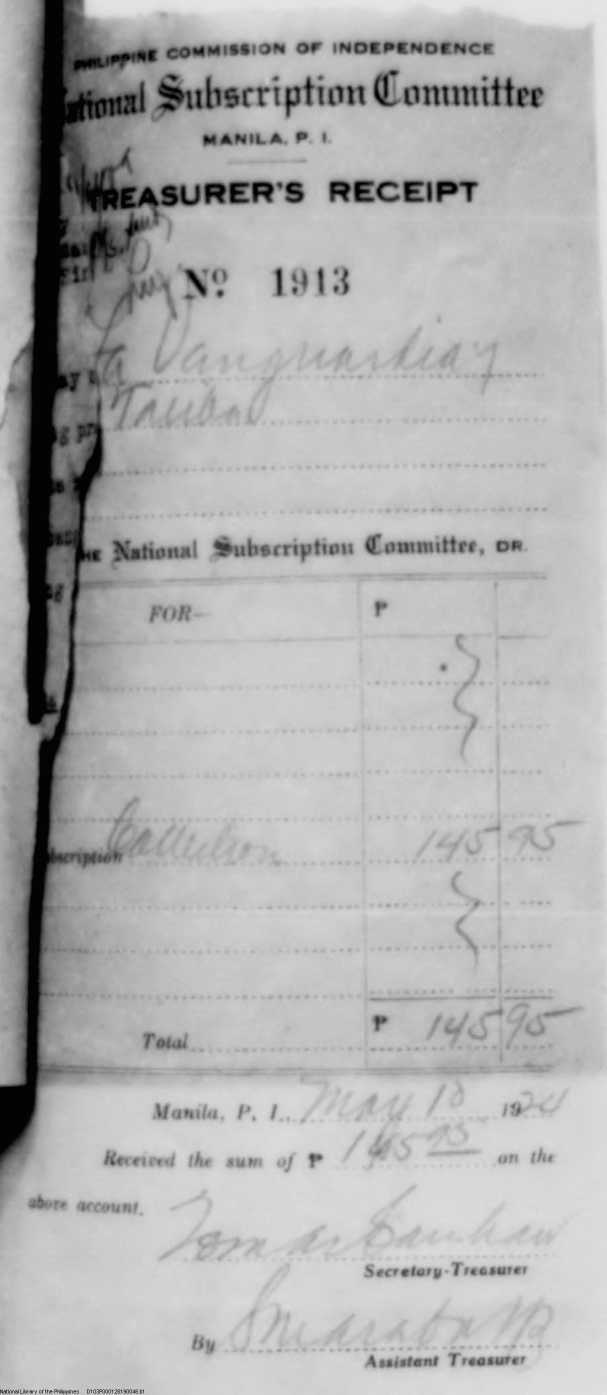 PHILIPPINE COMMISSION OF INDEPENDENCE
National Subscription Committee
MANILA, P. I.
TREASURER'S RECEIPT
Nº 1913
La Vanguardia y
Taliba
THE National Subscription Committee, DR.
FOR— ₱
bscription Collection 145 95
Total ₱ 145 95
Manila, P. I., May 10 1924
Received the sum of ₱ 145 95 on the
above account.
Tomas
Secretary-Treasurer
By
Assistant Treasurer
National Library of the Philippines